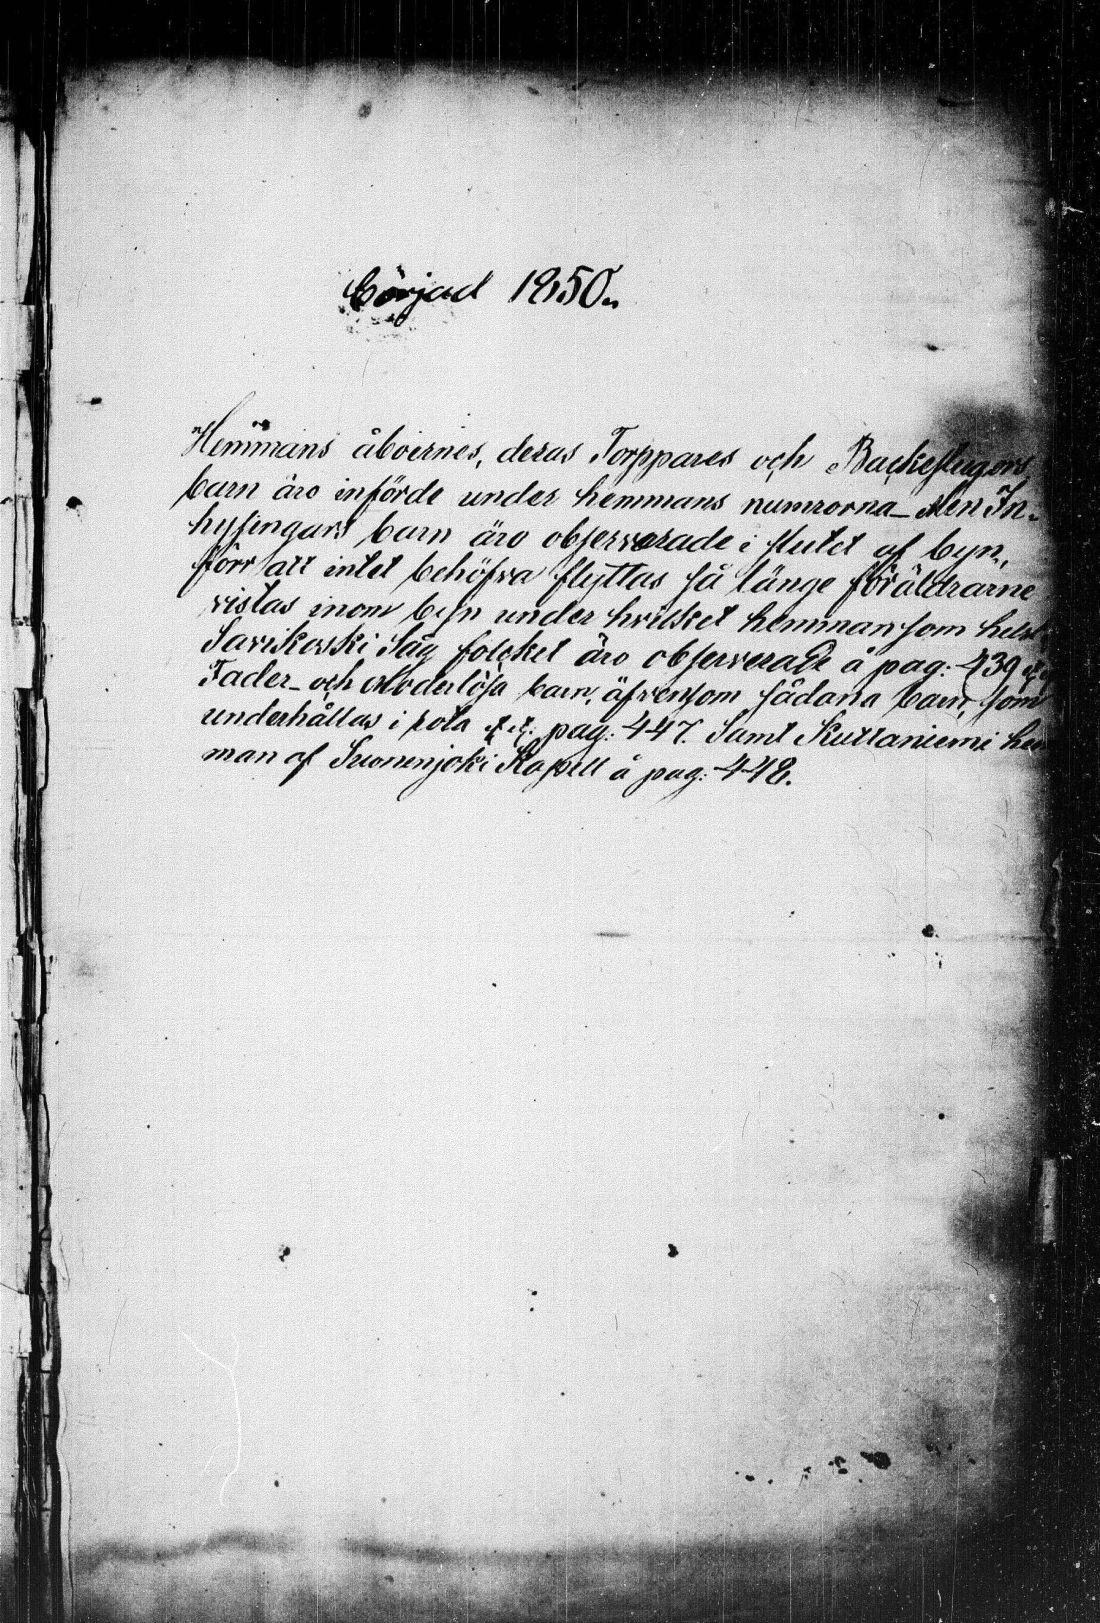 börjad 1850.
Hemmans åboernes, deras Torppares och Backestugors
barn äro införde under hemmans numrorna – Men In-
hysingars barn äro observerade i slutet af byn,
förr att intet behöfva flyttas så länge föräldrarne
vistas inom byn under hvilket hemman som helst
Savikoski Såg folcket äro observerade å pag: 439
Fader- och Moderlösa barn, äfvensom sådana barn, som
underhållas i rota pag: 447. Samt Kuttaniemi hem
man af Suonenjoki Kapell å pag: 448.